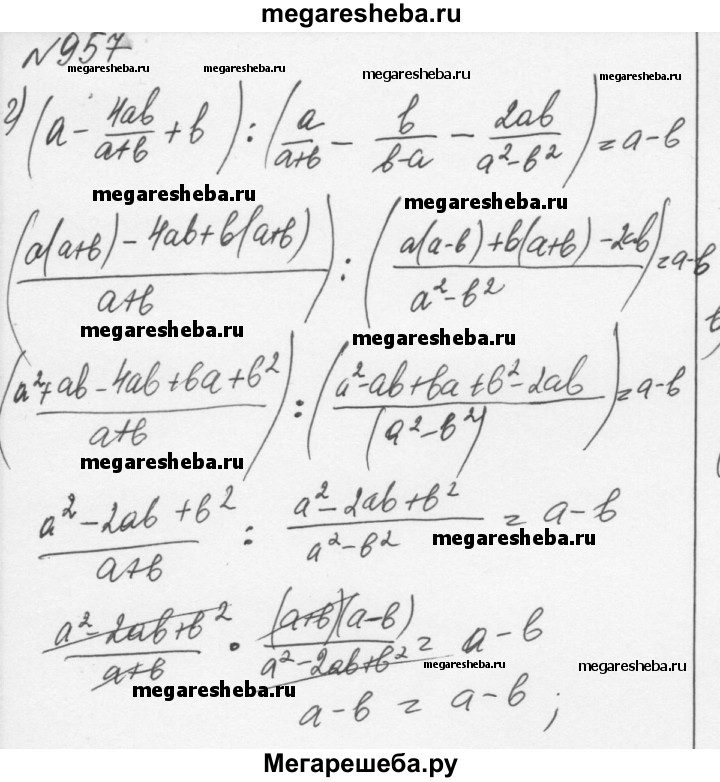 megaresheba.ru
№957
megaresheba.ru megaresheba.ru megaresheba.ru
г) (a - 4ab/(a+b) + b) : (a/(a+b) - b/(b-a) - 2ab/(a²-b²)) = a-b
megaresheba.ru megaresheba.ru
((a(a+b) - 4ab + b(a+b))/(a+b)) : ((a(a-b) + b(a+b) - 2ab)/(a²-b²)) = a-b
megaresheba.ru megaresheba.ru
((a²+ab-4ab+ba+b²)/(a+b)) : ((a²-ab+ba+b²-2ab)/(a²-b²)) = a-b
megaresheba.ru megaresheba.ru
(a²-2ab+b²)/(a+b) : (a²-2ab+b²)/(a²-b²) = a-b
megaresheba.ru
(a²-2ab+b²)/(a+b) · ((a+b)(a-b))/(a²-2ab+b²) = a-b
megaresheba.ru megaresheba.ru megaresheba.ru
a-b = a-b;
Мегарешеба.ру